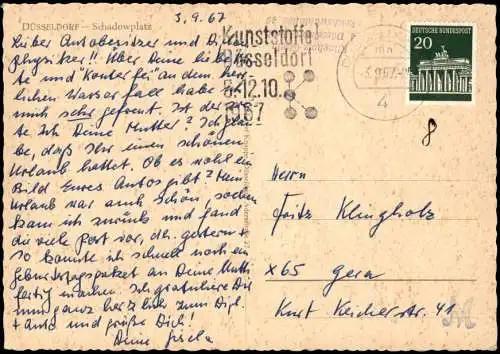 DÜSSELDORF – Schadowplatz
3.9.67
Lieber Autobesitzer und Diplom-
physiker!! Über Deine liebe Kar-
te und "Konterfei" an dem herr-
lichen Wasserfall habe ich
mich sehr gefreut. Ist der
te Ich Deine Mutter? Ich glau-
be, daß Ihr einen schönen
Urlaub hattet. Ob es wohl ein
Bild Eures Autos gibt? Mein
Urlaub war auch schön, soeben
kam ich zurück und fand
die viele Post vor, d.h. gestern +
so konnte ich schnell noch ein
Geburtstagspaket an Deine Mutti
fertig machen. Ich gratuliere Dir
nun ganz herzlich zum Dipl.
+ Auto und grüße Dich!
Deine Gisela
Kunststoffe
Düsseldorf
5.-12.10.
1967
4
DEUTSCHE BUNDESPOST
20
8
Herrn
Fritz Klingholz
X65 Gera
Kurt Keicher-str. 41